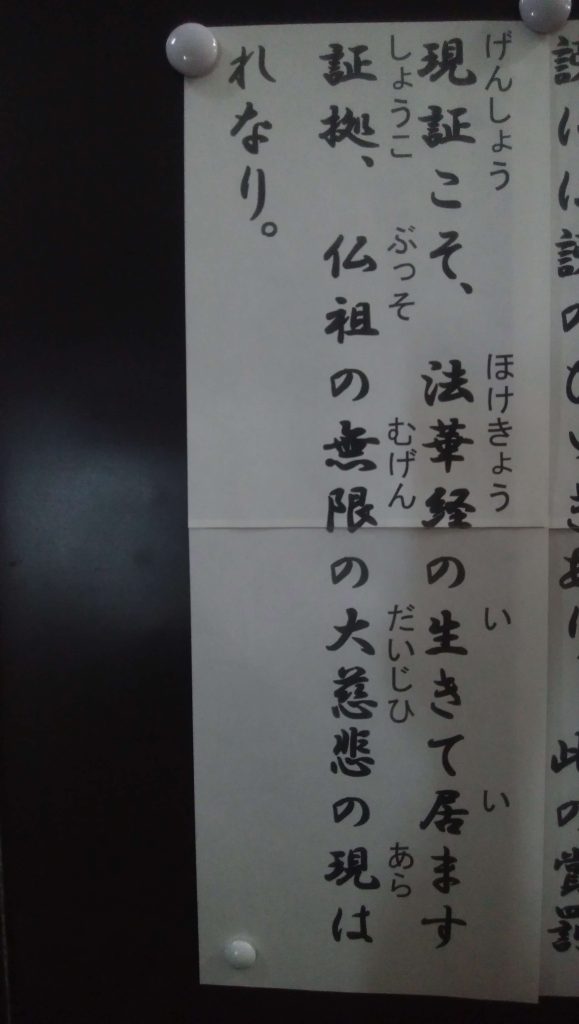 此の賞罰
げんしょう ほけきょう い い
現証こそ、法華経の生きて居ます
しょうこ ぶっそ むげん だいじひ あら
証拠、仏祖の無限の大慈悲の現は
れなり。